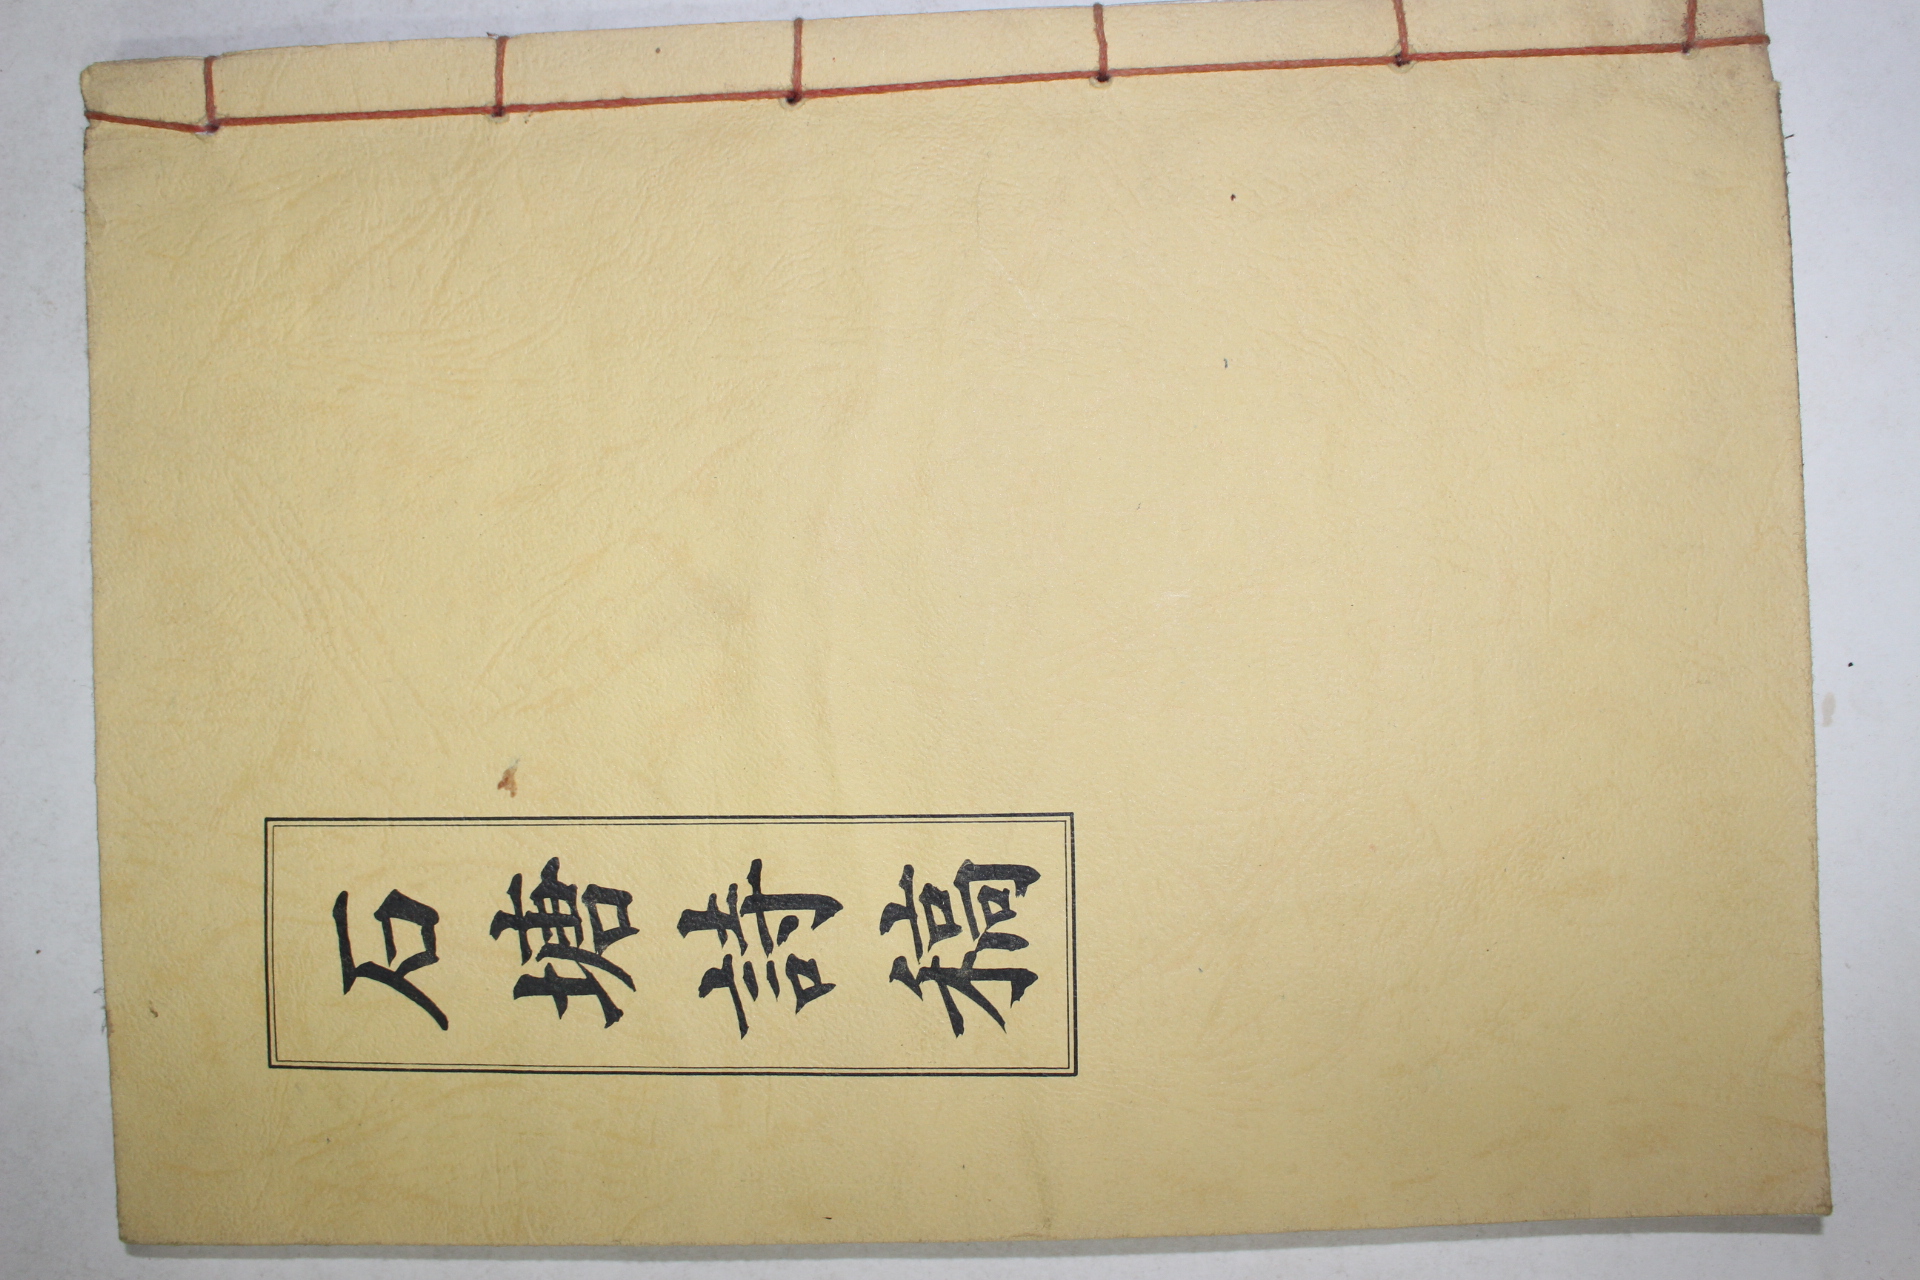 石塘詩稿